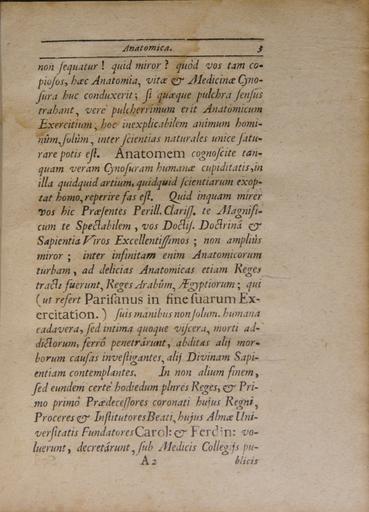 Anatomica. 3
non ſequatur! quid miror? quòd vos tam co-
pioſos, hæc Anatomia, vitæ & Medicinæ Cyno-
ſura huc conduxerit; ſi quæque pulchra ſenſus
trahant, verè pulcherrimum erit Anatomicum
Exercitium, hoc inexplicabilem animum homi-
nùm, ſolùm, inter ſcientias naturales unicè ſatu-
rare potis eſt. Anatomem cognoſcite tan-
quam veram Cynoſuram humanæ cupiditatis, in
illa quidquid artium, quidquid ſcientiarum exop-
tat homo, reperire fas eſt. Quid inquam mirer
vos hic Præſentes Perill. Clariſſ. te Magnifi-
cum te Spectabilem, vos Doctiſ. Doctrinâ &
Sapientia Viros Excellentiſſimos; non ampliùs
miror; inter infinitam enim Anatomicorum
turbam, ad delicias Anatomicas etiam Reges
tracti fuerunt, Reges Arabûm, Ægyptiorum; qui
(ut refert Pariſanus in fine ſuarum Ex-
ercitation.) ſuis manibus non ſolum. humana
cadavera, ſed intima quoque viſcera, morti ad-
dictorum, ferrô penetrárunt, abditas alij mor-
borum cauſas inveſtigantes, alij Divinam Sapi-
entiam contemplantes. In non alium finem,
ſed eundem certè hodiedum plures Reges, & Pri-
mo primò Prædeceſſores coronati hujus Regni,
Proceres & Inſtitutores Beati, hujus Almæ Uni-
verſitatis Fundatores Carol: & Ferdin: vo-
luerunt, decretárunt, ſub Medicis Collegijs pu-
A 2 blicis